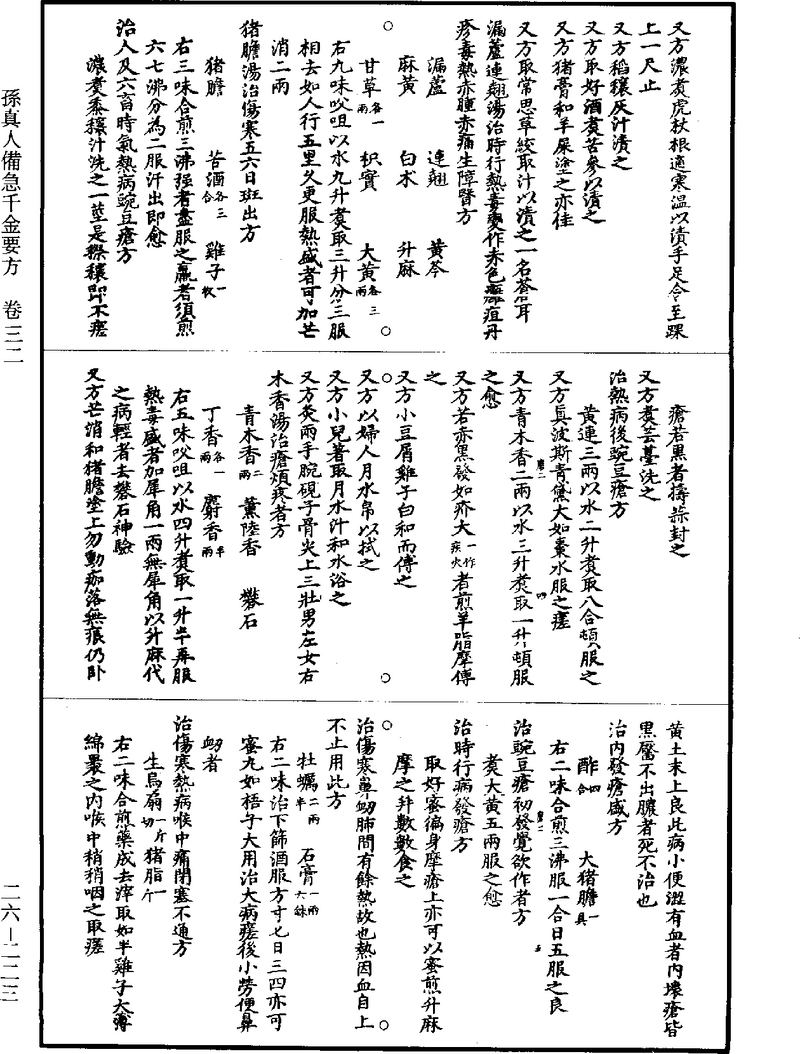 孫真人備急千金要方　卷三二
又方濃煑虎杖根適寒温以漬手足令至踝
上一尺止
又方稻穰灰汁漬之
又方取好酒煑苦參以漬之
又方猪膏和羊屎塗之亦佳
又方取常思草絞取汁以漬之一名蒼耳
漏蘆連翹湯治時行熱毒變作赤色癰疽丹
疹毒熱赤腫赤痛生障瞖方
漏蘆　連翹　黄芩
麻黄　白朮　升麻
甘草各一兩　枳實　大黄各三兩
右九味㕮咀以水九升煑取三升分三服
相去如人行五里久更服熱盛者可加芒
消二兩
猪膽湯治傷寒五六日斑出方
猪膽　苦酒各三合　雞子一枚
右三味合煎三沸强者盡服之羸者須煎
六七沸分為二服汗出即愈
治人及六畜時氣熱病豌豆瘡方
濃煑黍穰汁洗之一莖是穄穰即不瘥
瘡若黒者擣蒜封之
又方煑芸薹洗之
治熱病後豌豆瘡方
黄連三兩以水二升煑取八合頓服之
又方真波斯青黛大如棗水服之瘥
又方青木香二兩以水三升煑取一升頓服
之愈
又方若赤黒發如疥大一作疾火者煎羊脂摩傅
之
又方小豆屑雞子白和而傅之
又方以婦人月水帛以拭之
又方小兒著取月水汁和水浴之
又方灸兩手腕硯子骨尖上三壯男左女右
木香湯治瘡煩疼者方
青木香二兩　薰陸香　礬石
丁香各一兩　麝香半兩
右五味㕮咀以水四升煑取一升半再服
熱毒盛者加犀角一兩無犀角以升麻代
之病輕者去礬石神驗
又方芒消和猪膽塗上勿動痂落無痕仍卧
黄土末上良此病小便澀有血者内壞瘡皆
黒靨不出膿者死不治也
治内發瘡盛方
酢四合　大猪膽一具
右二味合煎三沸服一合日五服之良
治豌豆瘡初發覺欲作者方
煑大黄五兩服之愈
治時行病發瘡方
取好蜜徧身摩瘡上亦可以蜜煎升麻
摩之并數數食之
治傷寒鼻衂肺間有餘熱故也熱因血自上
不止用此方
牡蠣二兩半　石膏一兩六銖
右二味治下篩酒服方寸七日三四亦可
蜜丸如梧子大用治大病瘥後小勞便鼻
衂者
治傷寒熱病喉中痛閉塞不通方
生烏扇一斤切　猪脂一斤
右二味合煎藥成去滓取如半雞子大薄
綿裹之内喉中稍稍咽之取瘥
二六—二二三